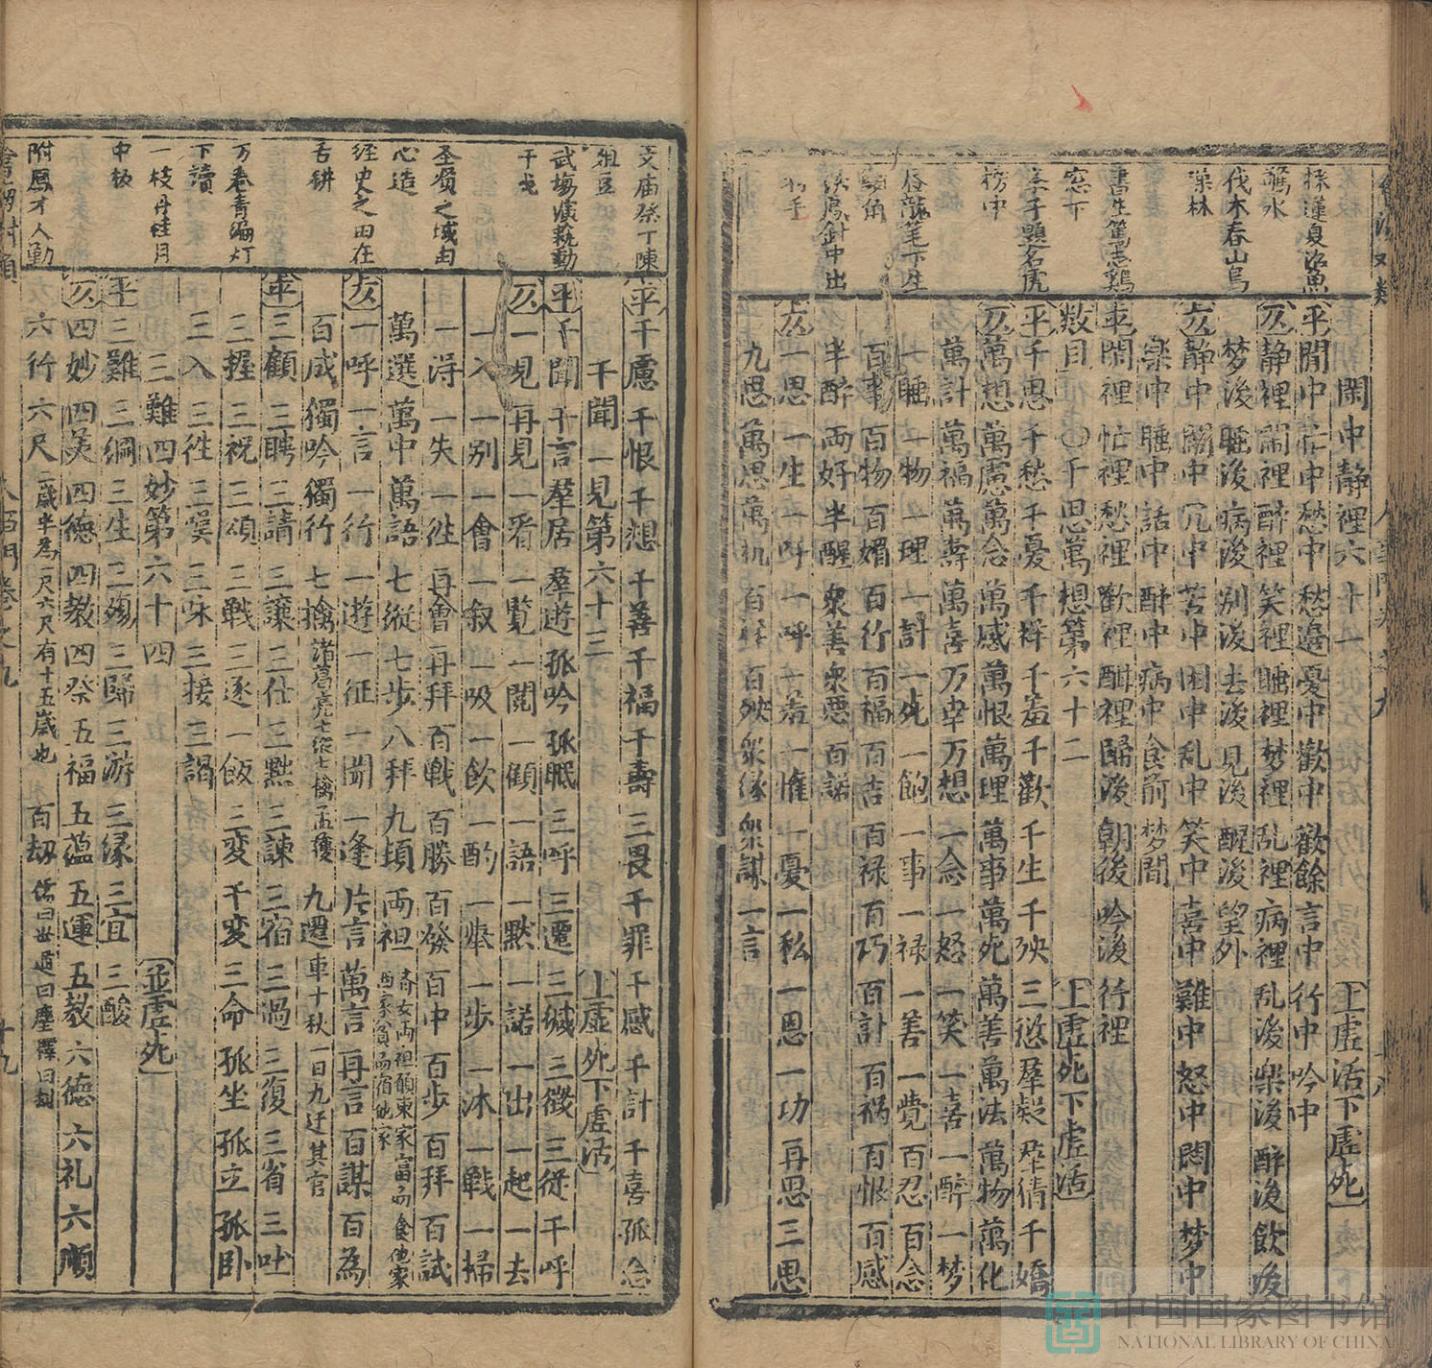 閑中靜裡六十一 上虛活下虛死
平 閑中 忙中 愁中 愁邊 憂中 歡中 歡餘 言中 行中 吟中
仄 静裡 鬧裡 醉裡 笑裡 睡裡 梦裡 乱裡 病裡 乱後 楽後 醉後 飲後
梦後 睡後 病後 别後 去後 見後 醒後 望外
仄 静中 鬧中 冗中 苦中 困中 乱中 笑中 喜中 難中 怒中 悶中 梦中
楽中 睡中 話中 醉中 病中 食前 梦間
平 閑裡 忙裡 愁裡 歡裡 酣裡 歸後 朝後 吟後 行裡
数目 〇千思萬想第六十二 上虛死下虛活
平 千思 千愁 千憂 千祥 千羞 千歡 千生 千殃 三慾 羣疑 羣猜 千嬌
仄 萬想 萬慮 萬念 萬感 萬恨 萬理 萬事 萬死 萬善 萬法 萬物 萬化
萬計 萬福 萬壽 萬喜 万幸 万想 一念 一怒 一笑 一喜 一醉 一梦
一睡 一物 一理 一計 一死 一飽 一事 一禄 一善 一覺 百忍 百念
百事 百物 百媚 百行 百福 百吉 百禄 百巧 百計 百祸 百恨 百感
半醉 両好 半醒 衆善 衆惡 百諾
仄 一思 一生 一呼 一羞 一惟 一憂 一私 一恩 一功 再思 三思
九思 萬思 萬机 百祥 百殃 衆缘 衆謀 一言
書生篤志鷄
窓下
伐木春山鳥
平 千慮 千恨 千想 千善 千福 千壽 三畏 千罪 千感 千計 千喜 孤念
千聞一見第六十三 上虛死下虛活
平 千聞 千言 羣居 羣遊 孤吟 孤眠 三呼 三遷 三緘 三徴 三従 千呼
仄 一見 再見 一看 一覧 一閲 一顧 一語 一默 一諾 一出 一起 一去
一入 一别 一會 一叙 一吸 一飲 一酌 一舉 一步 一沐 一戰 一掃
一淂 一失 一徃 再會 再拜 百戰 百勝 百發 百中 百步 百拜 百試
萬選 萬中 萬語 七縦 七步 八拜 九頓 両袒 斉女両袒願東家富而食他家西家貧而宿他家
仄 一呼 一言 一行 一遊 一征 一閙 一逢 片言 萬言 再言 百謀 百為
百成 獨吟 獨行 七擒 諸葛亮七縦七擒孟獲 九遷 車千秋一日九迁其言
平 三顧 三聘 三請 三讓 三仕 三黜 三諫 三宿 三過 三復 三省 三吐
三握 三祝 三頌 三戰 三逐 一飯 三変 千変 三命 孤坐 孤立 孤卧
三入 三徃 三奠 三沐 三接 三謁
三難四妙第六十四 並虛死
平 三難 三綱 三生 三殤 三歸 三游 三缘 三宜 三酸
仄 四妙 四美 四德 四教 四祭 五福 五蕴 五運 五教 六德 六礼 六順
六行 六尺 二歳半為一尺六尺有十五歳也 百劫 儒曰世道曰塵釋曰劫
文庙祭丁陳
俎豆
武塲演藝動
干戈
圣贤之域由
心造
経史之田在
舌耕
万卷青编灯
下讀
一枝丹桂月
中扳
附鳳才人動
中国国家图书馆
NATIONAL LIBRARY OF CHINA